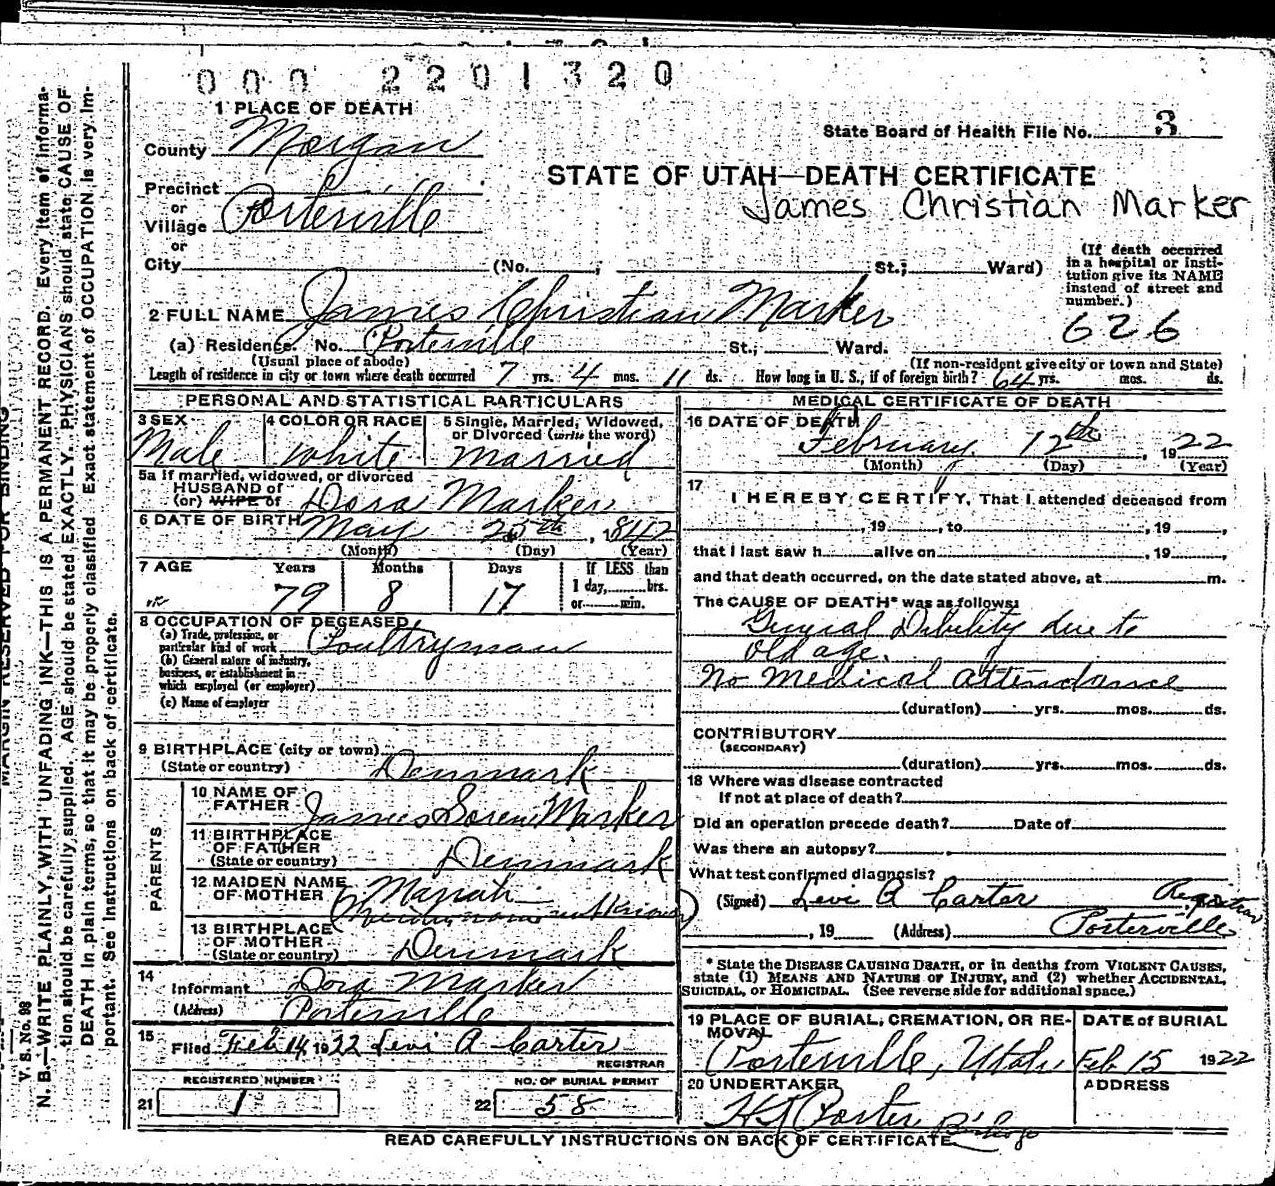 0 0 0 2 2 0 1 3 2 0
1 PLACE OF DEATH
County Morgan
State Board of Health File No. 3
STATE OF UTAH—DEATH CERTIFICATE
James Christian Marker
Precinct
or
Village Porterville
or
City (No. ; St.; Ward)
(If death occurred
in a hospital or insti-
tution give its NAME
instead of street and
number.)
626
2 FULL NAME James Christian Marker
(a) Residence. No. Porterville St.; Ward.
(Usual place of abode) (If non-resident give city or town and State)
Length of residence in city or town where death occurred 7 yrs. 4 mos. 11 ds. How long in U. S., if of foreign birth? 64 yrs. mos. ds.
PERSONAL AND STATISTICAL PARTICULARS
3 SEX
Male
4 COLOR OR RACE
White
5 Single, Married, Widowed,
or Divorced (write the word)
Married
5a If married, widowed, or divorced
HUSBAND of
(or) WIFE of Dora Marker
6 DATE OF BIRTH May 25th, 1842
(Month) (Day) (Year)
7 AGE Years Months Days If LESS than
1 day, hrs.
or min.
79 8 17
8 OCCUPATION OF DECEASED
(a) Trade, profession, or
particular kind of work Poultryman
(b) General nature of industry,
business, or establishment in
which employed (or employer)
(c) Name of employer
9 BIRTHPLACE (city or town)
(State or country) Denmark
PARENTS
10 NAME OF
FATHER James Soren Marker
11 BIRTHPLACE
OF FATHER
(State or country) Denmark
12 MAIDEN NAME
OF MOTHER Mariah
(Maiden name unknown)
13 BIRTHPLACE
OF MOTHER
(State or country) Denmark
14
Informant Dora Marker
(Address) Porterville
15
Filed Feb 14 1922 Levi A Carter
REGISTRAR
REGISTERED NUMBER
21 1
NO. OF BURIAL PERMIT
22 58
MEDICAL CERTIFICATE OF DEATH
16 DATE OF DEATH
February 12th, 1922
(Month) (Day) (Year)
17
I HEREBY CERTIFY, That I attended deceased from
, 19 , to , 19 ,
that I last saw h alive on , 19 ,
and that death occurred, on the date stated above, at m.
The CAUSE OF DEATH* was as follows:
General Dibility due to
old age.
No Medical Attendance
(duration) yrs. mos. ds.
CONTRIBUTORY
(SECONDARY)
(duration) yrs. mos. ds.
18 Where was disease contracted
If not at place of death?
Did an operation precede death? Date of
Was there an autopsy?
What test confirmed diagnosis?
(Signed) Levi A Carter Registrar
, 19 (Address) Porterville
* State the DISEASE CAUSING DEATH, or in deaths from VIOLENT CAUSES,
state (1) MEANS AND NATURE OF INJURY, and (2) whether ACCIDENTAL,
SUICIDAL, or HOMICIDAL. (See reverse side for additional space.)
19 PLACE OF BURIAL, CREMATION, OR RE-
MOVAL
Porterville, Utah
DATE of BURIAL
Feb 15 1922
20 UNDERTAKER
Porter Bishop
ADDRESS
READ CAREFULLY INSTRUCTIONS ON BACK OF CERTIFICATE
MARGIN RESERVED FOR BINDING
V. S. No. 98
N. B.—WRITE PLAINLY, WITH UNFADING INK—THIS IS A PERMANENT RECORD. Every item of informa-
tion should be carefully supplied. AGE should be stated EXACTLY. PHYSICIANS should state CAUSE OF
DEATH in plain terms, so that it may be properly classified. Exact statement of OCCUPATION is very im-
portant. See instructions on back of certificate.